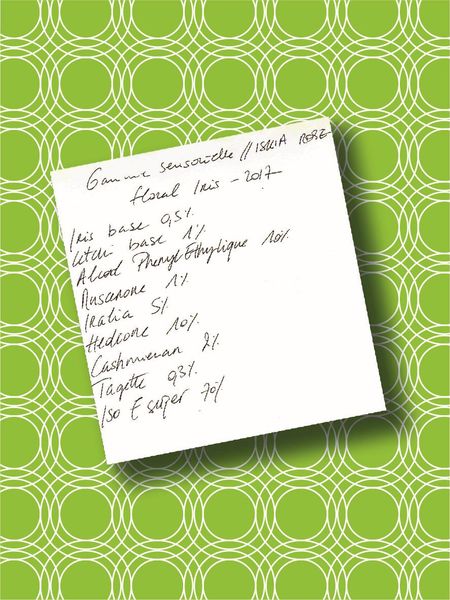 Gamme sensorielle // ISKIA ROSE
floral Iris - 2017
Iris base 0,5%
Litchi base 1%
Alcool Phenyl Ethylique 10%
Muscenone 1%
Iralia 5%
Hedione 10%
Cashmeran 2%
Tagette 0,3%
Iso E super 70%